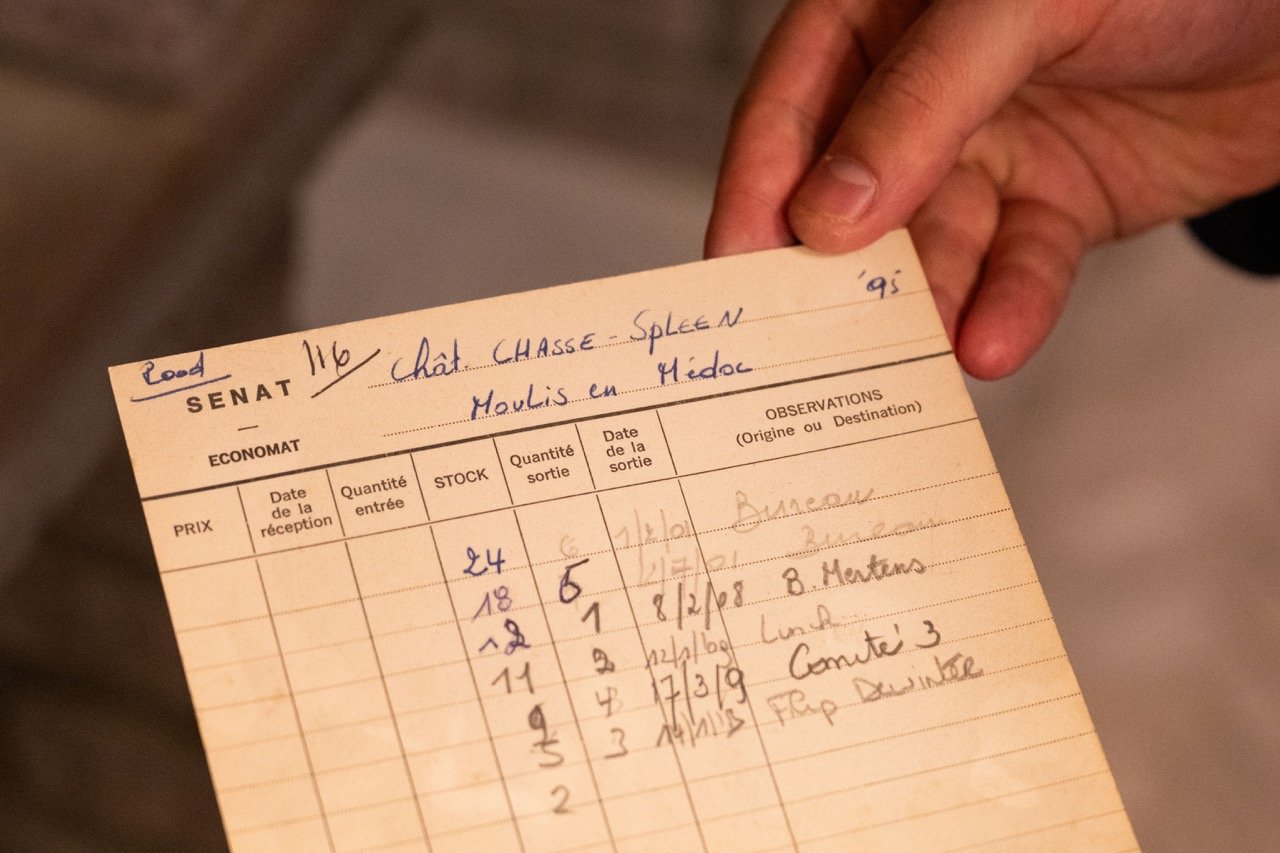 '95
Rood 116 Chât. CHASSE-SpLEEN
SENAT Moulis en Médoc
—
ECONOMAT
PRIX
Date de la réception
Quantité entrée
STOCK
Quantité sortie
Date de la sortie
OBSERVATIONS
(Origine ou Destination)
24 6 1/2/01 Bureau
18 6 Bureau
12 1 8/2/08 B. Mertens
11 2 12/1/09
9 4 17/3/9 Comité 3
5 3 Dewinter
2